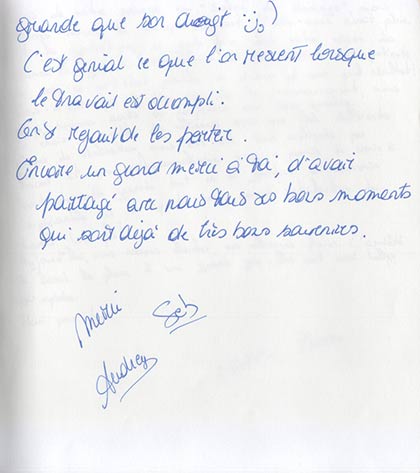 grande que son doigt :)
C'est génial ce que l'on ressent lorsque
le travail est accompli.
On se réjouit de les porter.
Encore un grand merci à toi, d'avoir
partagé avec nous tous ces bons moments
qui sont déjà de très bons souvenirs.
Merci Seb
Audrey